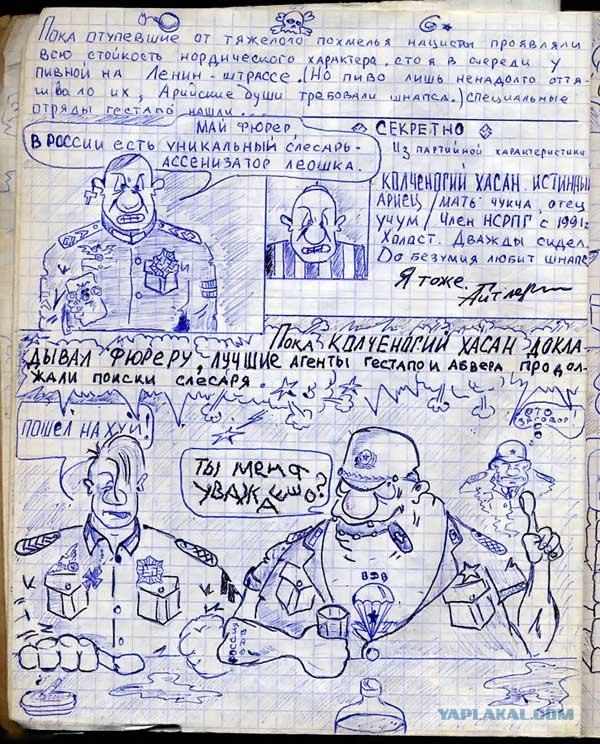 Пока отупевшие от тяжелого похмелья нацисты проявляли
всю стойкость нордического характера, стоя в очереди у
пивной на Ленин-штрассе. (Но пиво лишь ненадолго оття-
гивало их, Арийские души требовали шнапса.) специальные
отряды гестапо нашли...
Май Фюрер,
В России есть уникальный слесарь-
ассенизатор Леошка.
Секретно
Из партийной характеристики
Колченогий Хасан. Истинный
ариец /мать чукча, отец
учум/ Член НСРПГ с 1991г
Холаст. Дважды сидел.
До безумия любит шнапс
Я тоже.
Айтлер
Пока Колченогий Хасан докла-
дывал фюреру, лучшие агенты гестапо и абвера продол-
жали поиски слесаря.
это
заговор!
Пошел на хуй!
Ты меня
уважаешь?
ВДВ
Россия
YAPLAKAL.COM